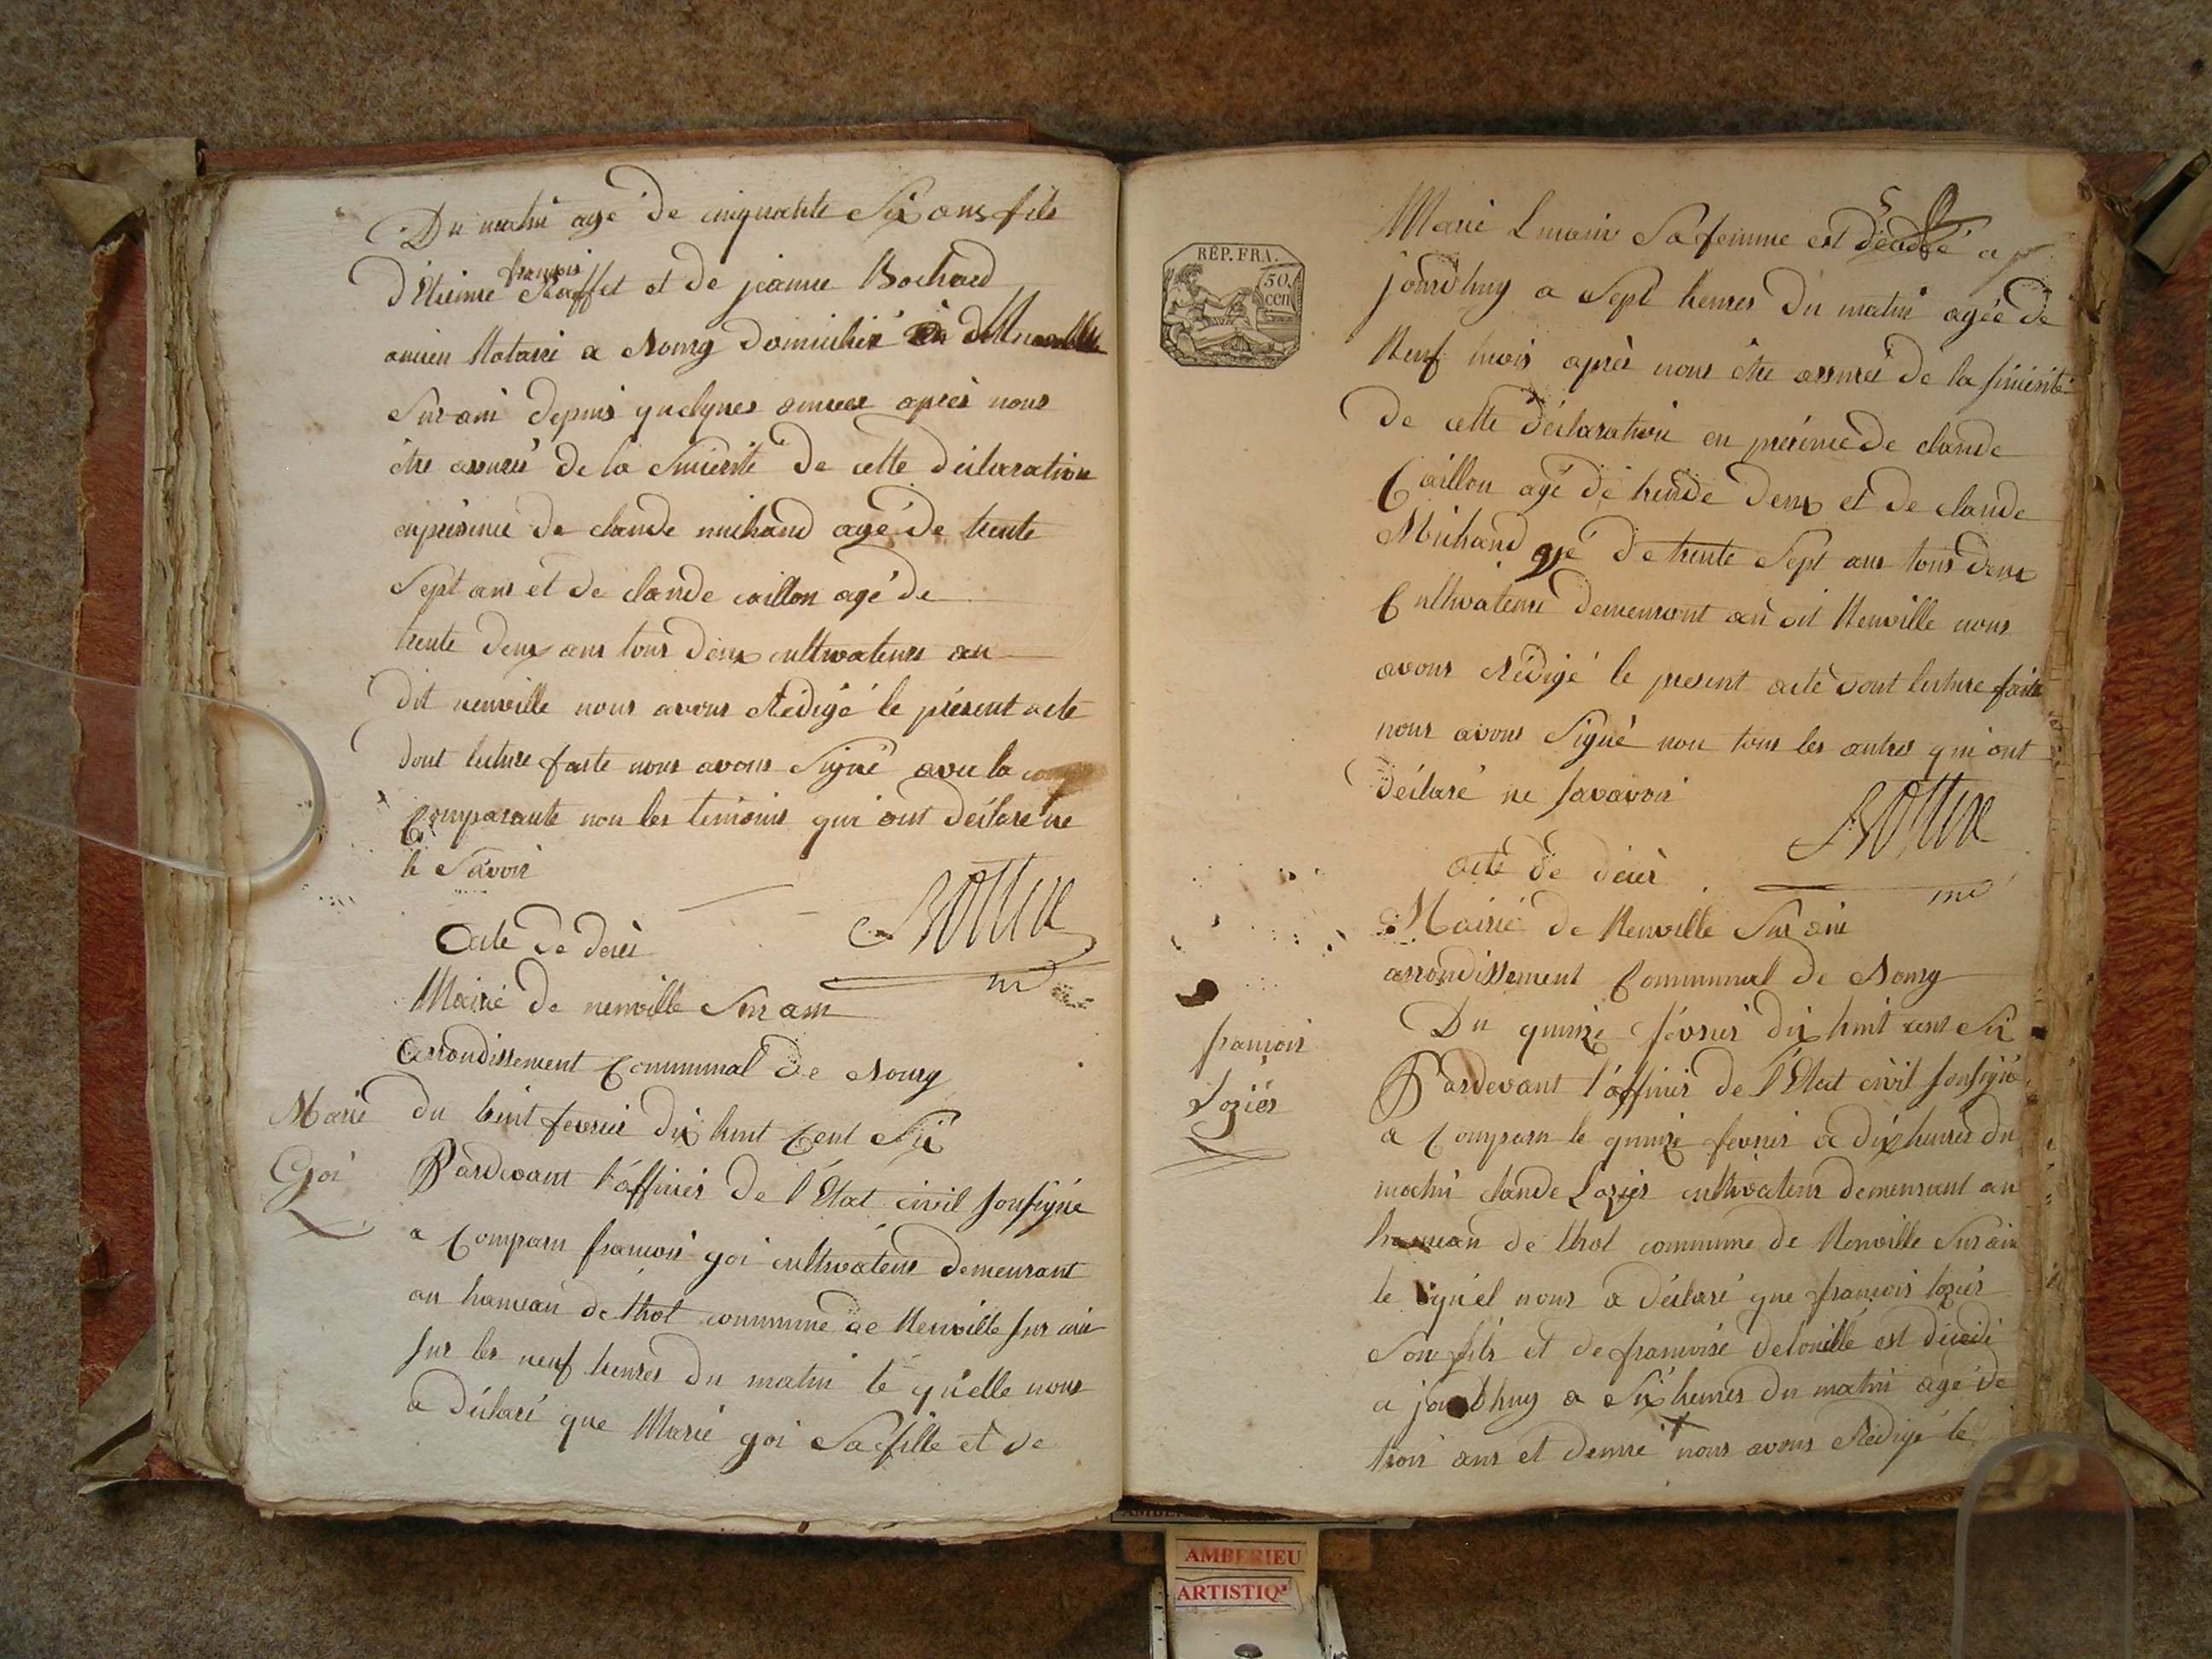 Du matin agé de cinquante Six ans fils
françois
d'Etienne et de jeanne Bochard
ancien Notaire a domicilié
Sur ain depuis quelques annees après nous
être assuré de la Sincerité de cette déclaration
en présence de claude michaud agé de trente
Sept ans et de claude caillon agé de
trente deux ans tous deux cultivateurs au
dit neuville nous avons Rédigé le présent acte
dont lecture faite nous avons Signé avec la
Comparante non les temoins qui ont déclaré ne
le Savoir
Acte de décès
Mairie de neuville Sur ain
Arrondissement Communal de
Marie
Goi
du huit fevrier dix huit Cent Six
Pardevant l'officier de l'Etat civil Sousigné
a Comparu françois goi cultivateur demeurant
au hameau de thol commune de Neuville Sur ain
Sur les neuf heures du matin le quelle nous
a déclaré que Marie goi Sa fille et de
RÉP. FRA.
50 cen
5
Marie Sa femme est décédé a
jourdhuy a Sept heures du matin agée de
Neuf mois après nous être assuré de la Sincérité
de cette déclaration en présence de claude
Caillon agé de trente deux et de claude
Michaud agé de trente Sept ans tous deux
Cultivateurs demeurant au dit Neuville nous
avons Rédigé le present acte dont lecture faite
nous avons Signé non tous les autres qui ont
déclaré ne Savavoir
acte de décès
Mairie de Neuville Sur ain
arrondissement Communal de
françois
Lozier
Du quinze février dix huit cent Six
Pardevant l'officier de l'Etat civil Sousigné
a Comparu le quinze fevrier a dix heures du
matin claude Lozier cultivateur demeurant au
hameau de thol commune de Neuville Sur ain
le quel nous a déclaré que françois lozier
Son fils et de françoise est décédé
a jourdhuy a Six heures du matin agé de
trois ans et demie nous avons Rédigé le
AMBERIEU
ARTISTIQ